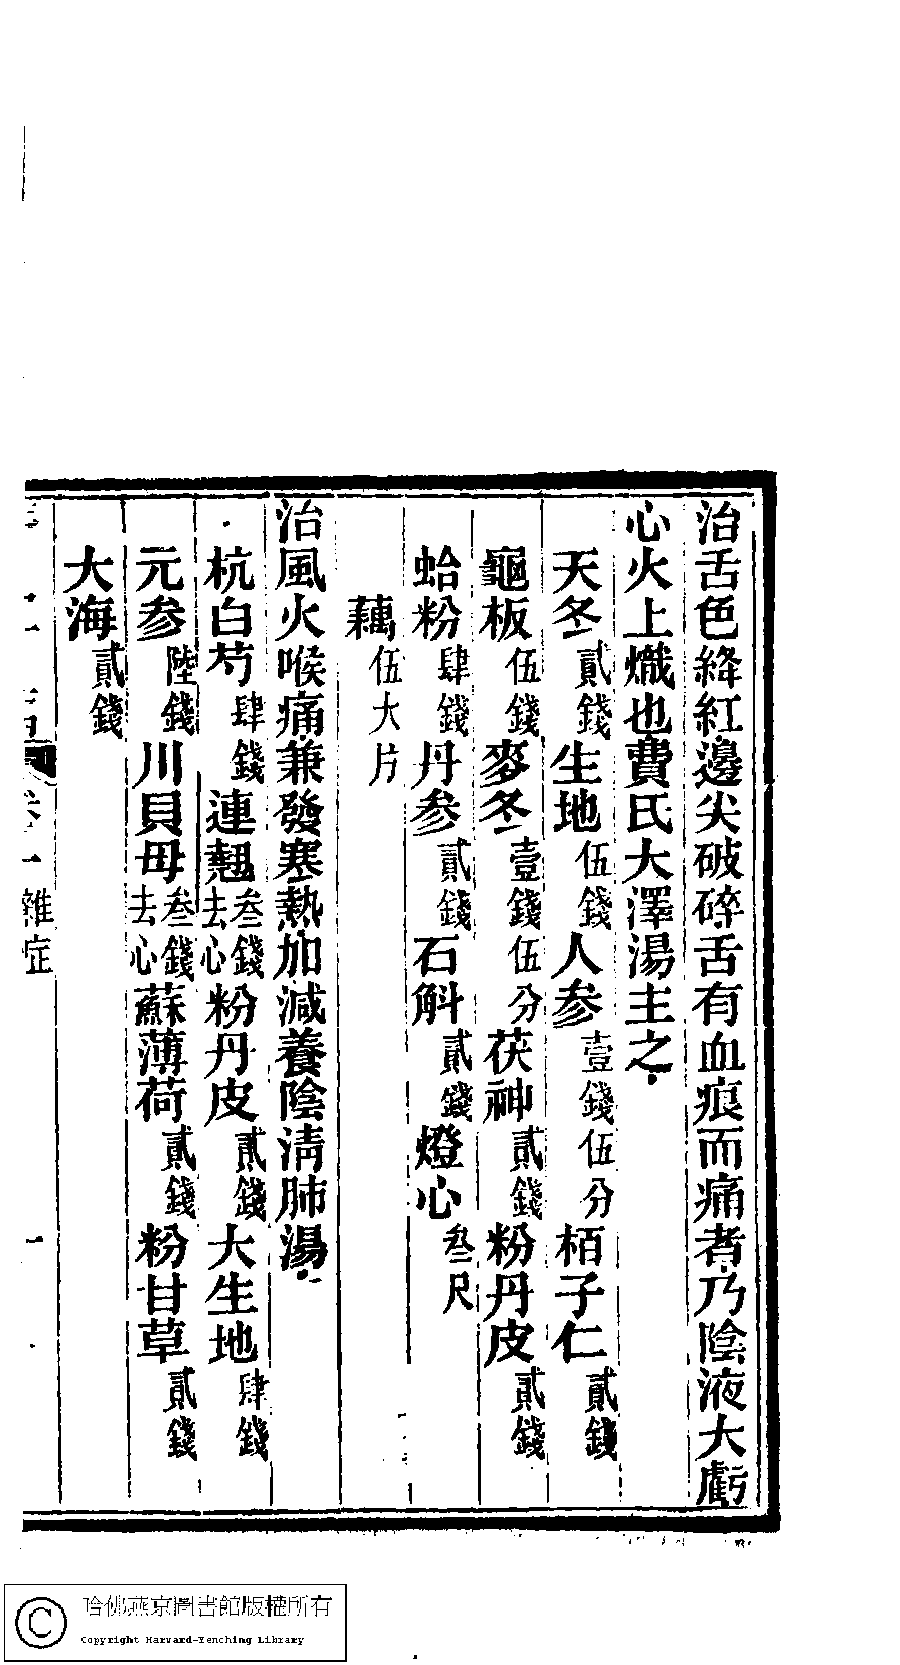 治舌色絳紅邊尖破碎舌有血痕而痛者乃陰液大虧
心火上熾也費氏大澤湯主之
天冬貳錢生地伍錢人參壹錢伍分栢子仁貳錢
龜板伍錢麥冬壹錢伍分茯神貳錢粉丹皮貳錢
蛤粉肆錢丹參貳錢石斛貳錢燈心叁尺
藕伍大片
治風火喉痛兼發寒熱加減養陰淸肺湯
杭白芍肆錢連翹叁錢去心粉丹皮貳錢大生地肆錢
元參陸錢川貝母叁錢去心蘇薄荷貳錢粉甘草貳錢
大海貳錢
雜症
一
哈佛燕京圖書館版權所有
Copyright Harvard-Yenching Library